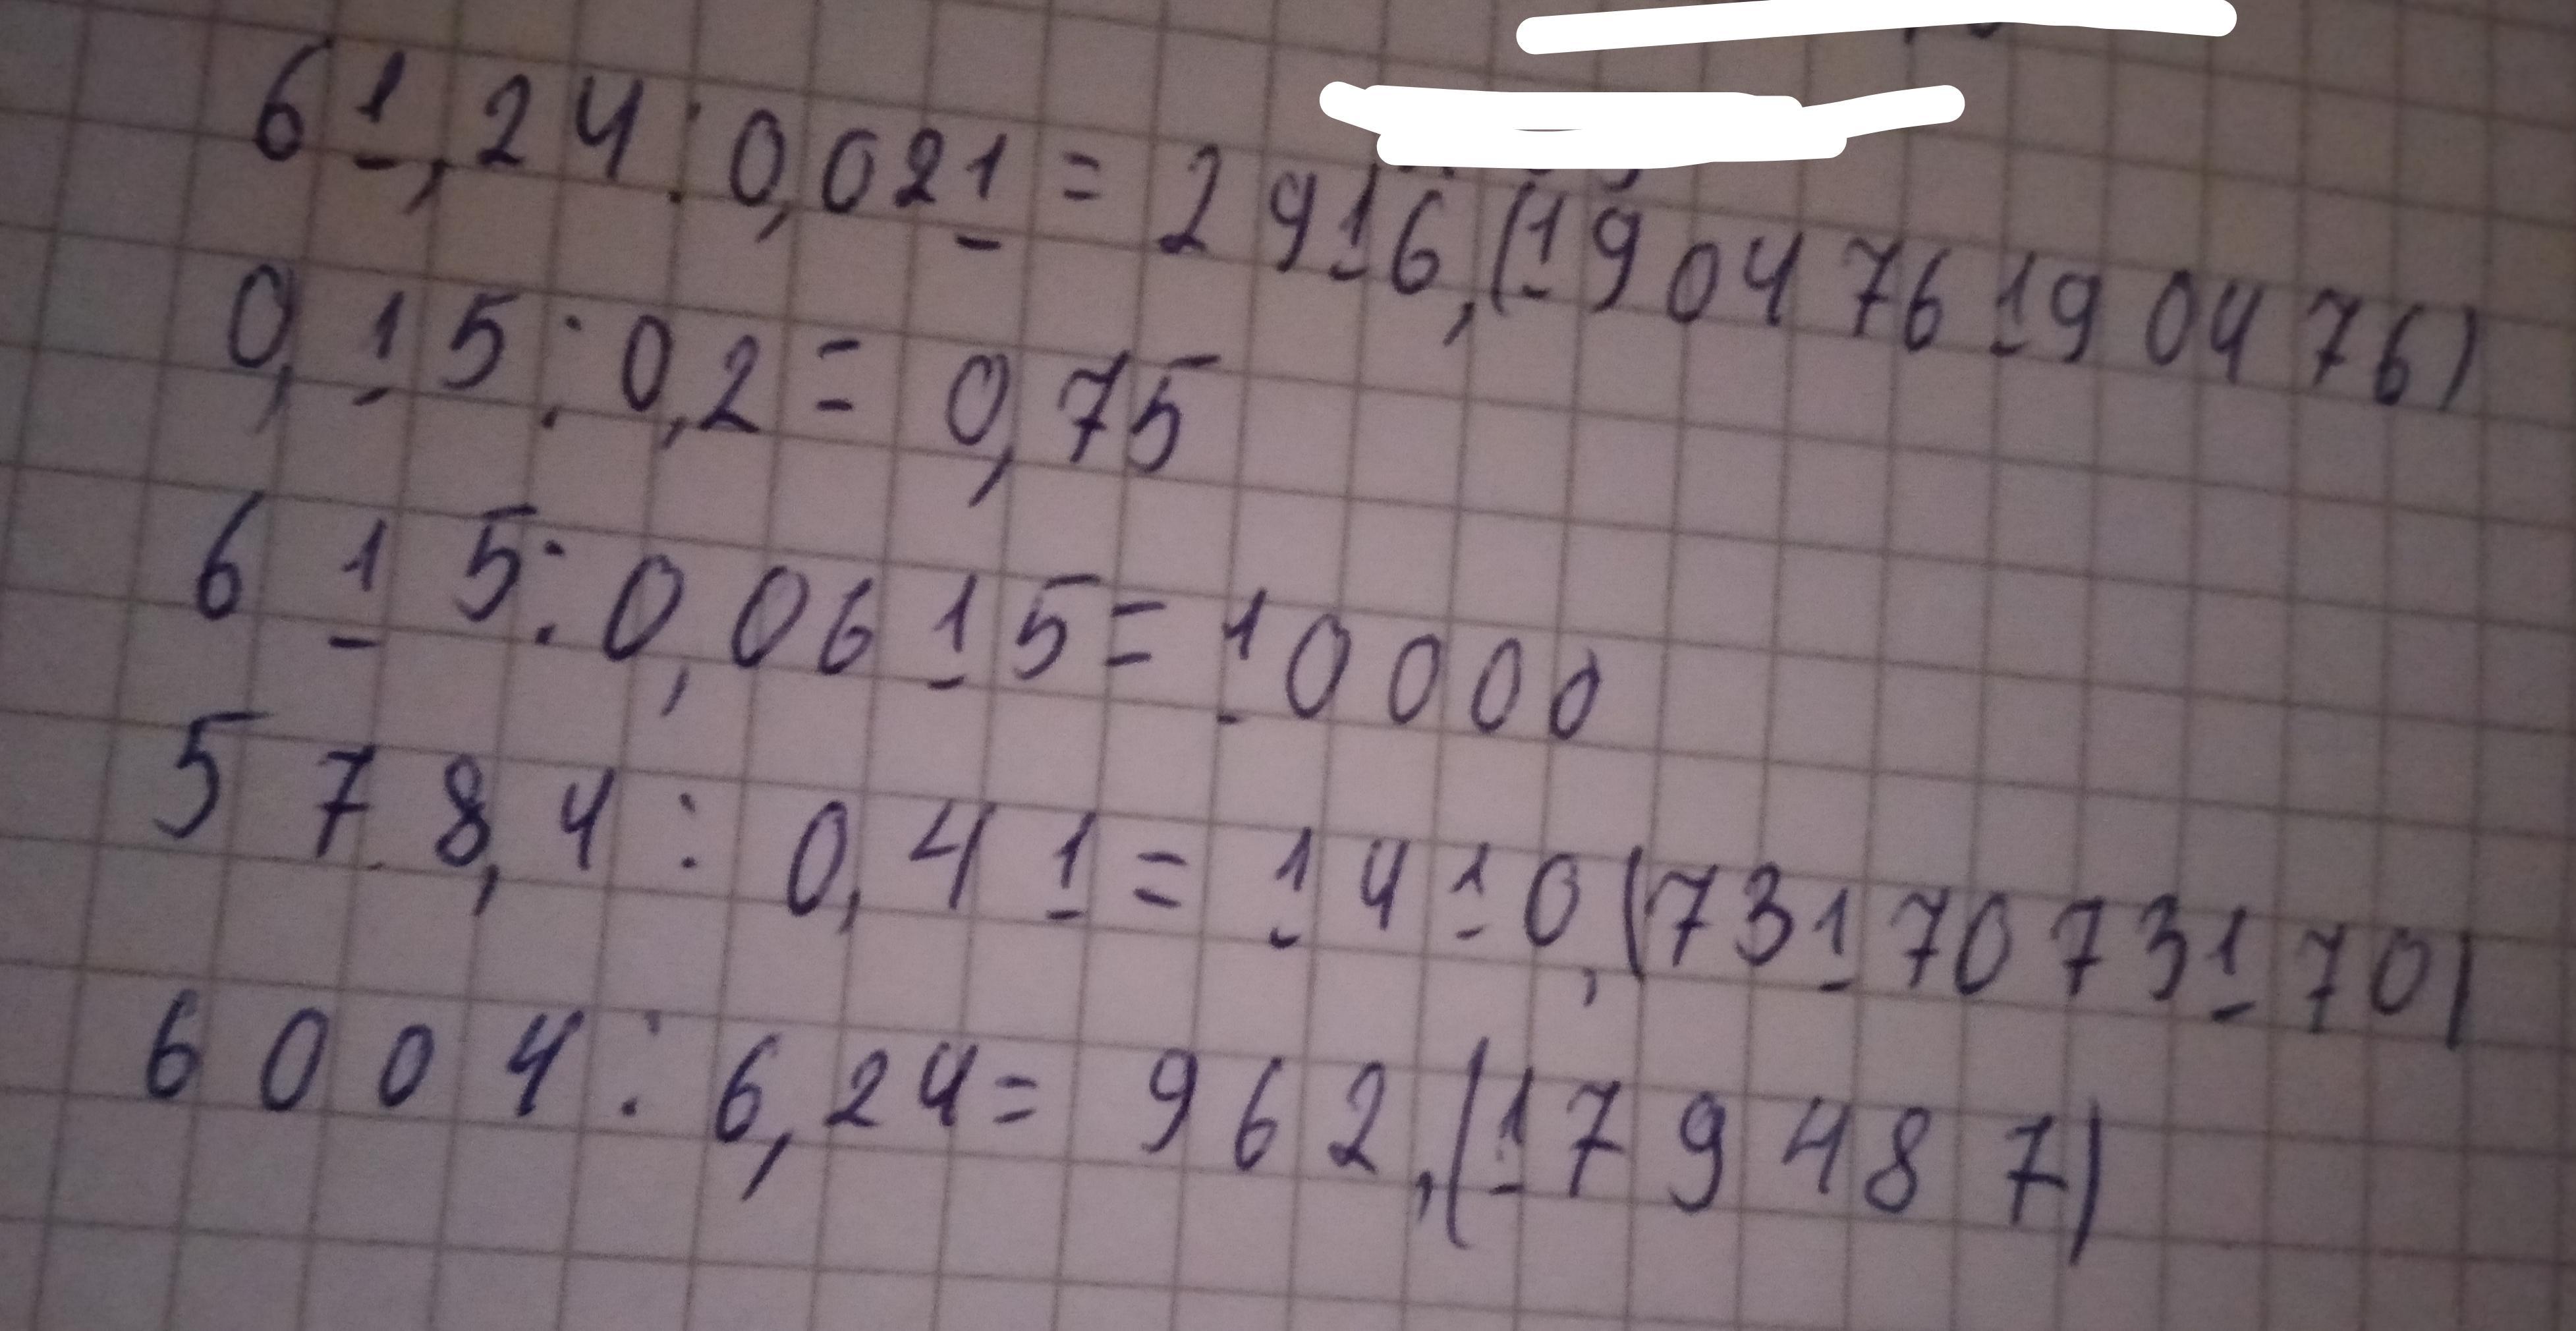 61,24:0,021=2916,(190476190476)
0,15:0,2=0,75
615:0,0615=10000
578,4:0,41=1410,(7317073170)
6004:6,24=962,(179487)